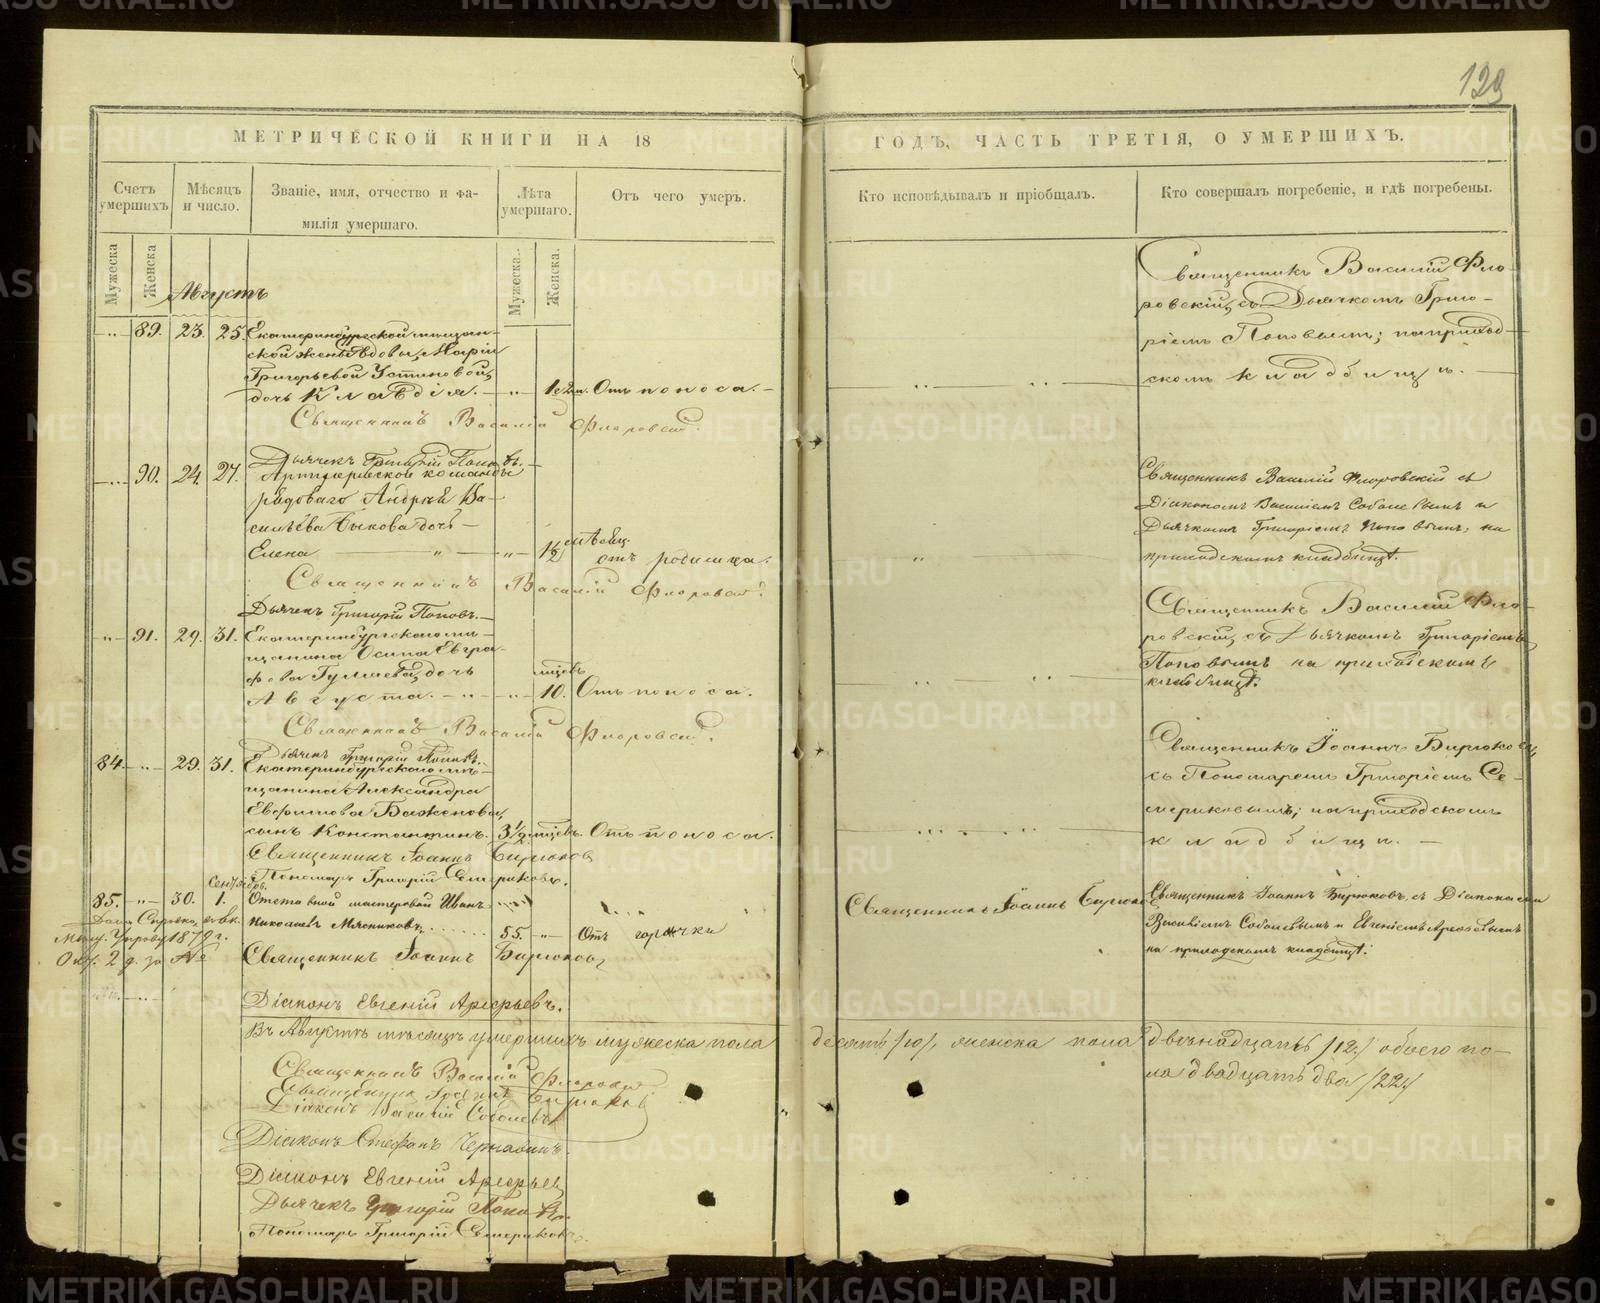 129
МЕТРИЧЕСКОЙ КНИГИ НА 18
ГОДЪ, ЧАСТЬ ТРЕТІЯ, О УМЕРШИХЪ.
Счетъ умершихъ.
Мѣсяцъ и число.
Званіе, имя, отчество и фамилія умершаго.
Лѣта умершаго.
Отъ чего умеръ.
Кто исповѣдывалъ и пріобщалъ.
Кто совершалъ погребеніе, и гдѣ погребены.
Мужеска
Женска.
Мужеска.
Женска.
Августъ
89. 23. 25. Екатеринбургской мѣщан-
ской жены вдовы, Маріи
Григорьевой Устиновой,
дочь Клавдія. 1 Отъ поноса.
Священникъ Василій Фло-
ровскій, съ Дьячкомъ Григо-
ріемъ Поповымъ; на приход-
скомъ кладбищѣ.
Священникъ Василій Флоровскій.
Дьячекъ Григорій Поповъ.
90. 24. 27. Артиллерійской команды
рядоваго Андрея Ва-
сильева Быкова дочь
Елена 1½ мѣсяц. отъ родимца.
Священникъ Василій Флоровскій съ
Діакономъ Василіемъ Соболевымъ и
Дьячкомъ Григоріемъ Поповымъ, на
приходскомъ кладбищѣ.
Священникъ Василій Флоровскій.
Дьячекъ Григорій Поповъ.
91. 29. 31. Екатеринбургскаго мѣ-
щанина Осипа Евгра-
фова дочь
Августа. 10. Отъ поноса.
Священникъ Василій Фло-
ровскій, съ Дьячкомъ Григоріемъ
Поповымъ на приходскомъ
кладбищѣ.
Священникъ Василій Флоровскій.
Дьячекъ Григорій Поповъ.
84. 29. 31. Екатеринбургскаго мѣ-
щанина Александра
Евфимова Баженова,
сынъ Константинъ. 3½ мѣсцв. Отъ поноса.
Священникъ Іоаннъ Бирюковъ,
съ Пономаремъ Григоріемъ Се-
мериковымъ; на приходскомъ
кладбищѣ.
Священникъ Іоаннъ Бирюковъ
Пономарь Григорій Семериковъ.
Сентября.
85. 30. 1. Отставной мастеровой Иванъ
Николаевъ Мясниковъ 55. Отъ горячки
Священникъ Іоаннъ Бирюковъ
Священникъ Іоаннъ Бирюковъ съ Діаконами
Василіемъ Соболевымъ и Евгеніемъ Арефьевымъ
на приходскомъ кладбищѣ.
1879 г.
Окт. 2 д. за №
Священникъ Іоаннъ Бирюковъ,
Діаконъ Евгеній Арефьевъ.
Въ Августѣ мѣсяцѣ умершихъ мужеска пола десять /10/, женска пола двѣнадцать /12/ обоего по-
ла двадцать два /22/
Священникъ Василій Флоровскій
Священникъ Іоаннъ Бирюковъ
Діаконъ Василій Соболевъ
Діаконъ Стефанъ Чернавинъ.
Діаконъ Евгеній Арефьевъ
Дьячекъ Григорій Поповъ.
Пономарь Григорій Семериковъ.
METRIKI.GASO-URAL.RU